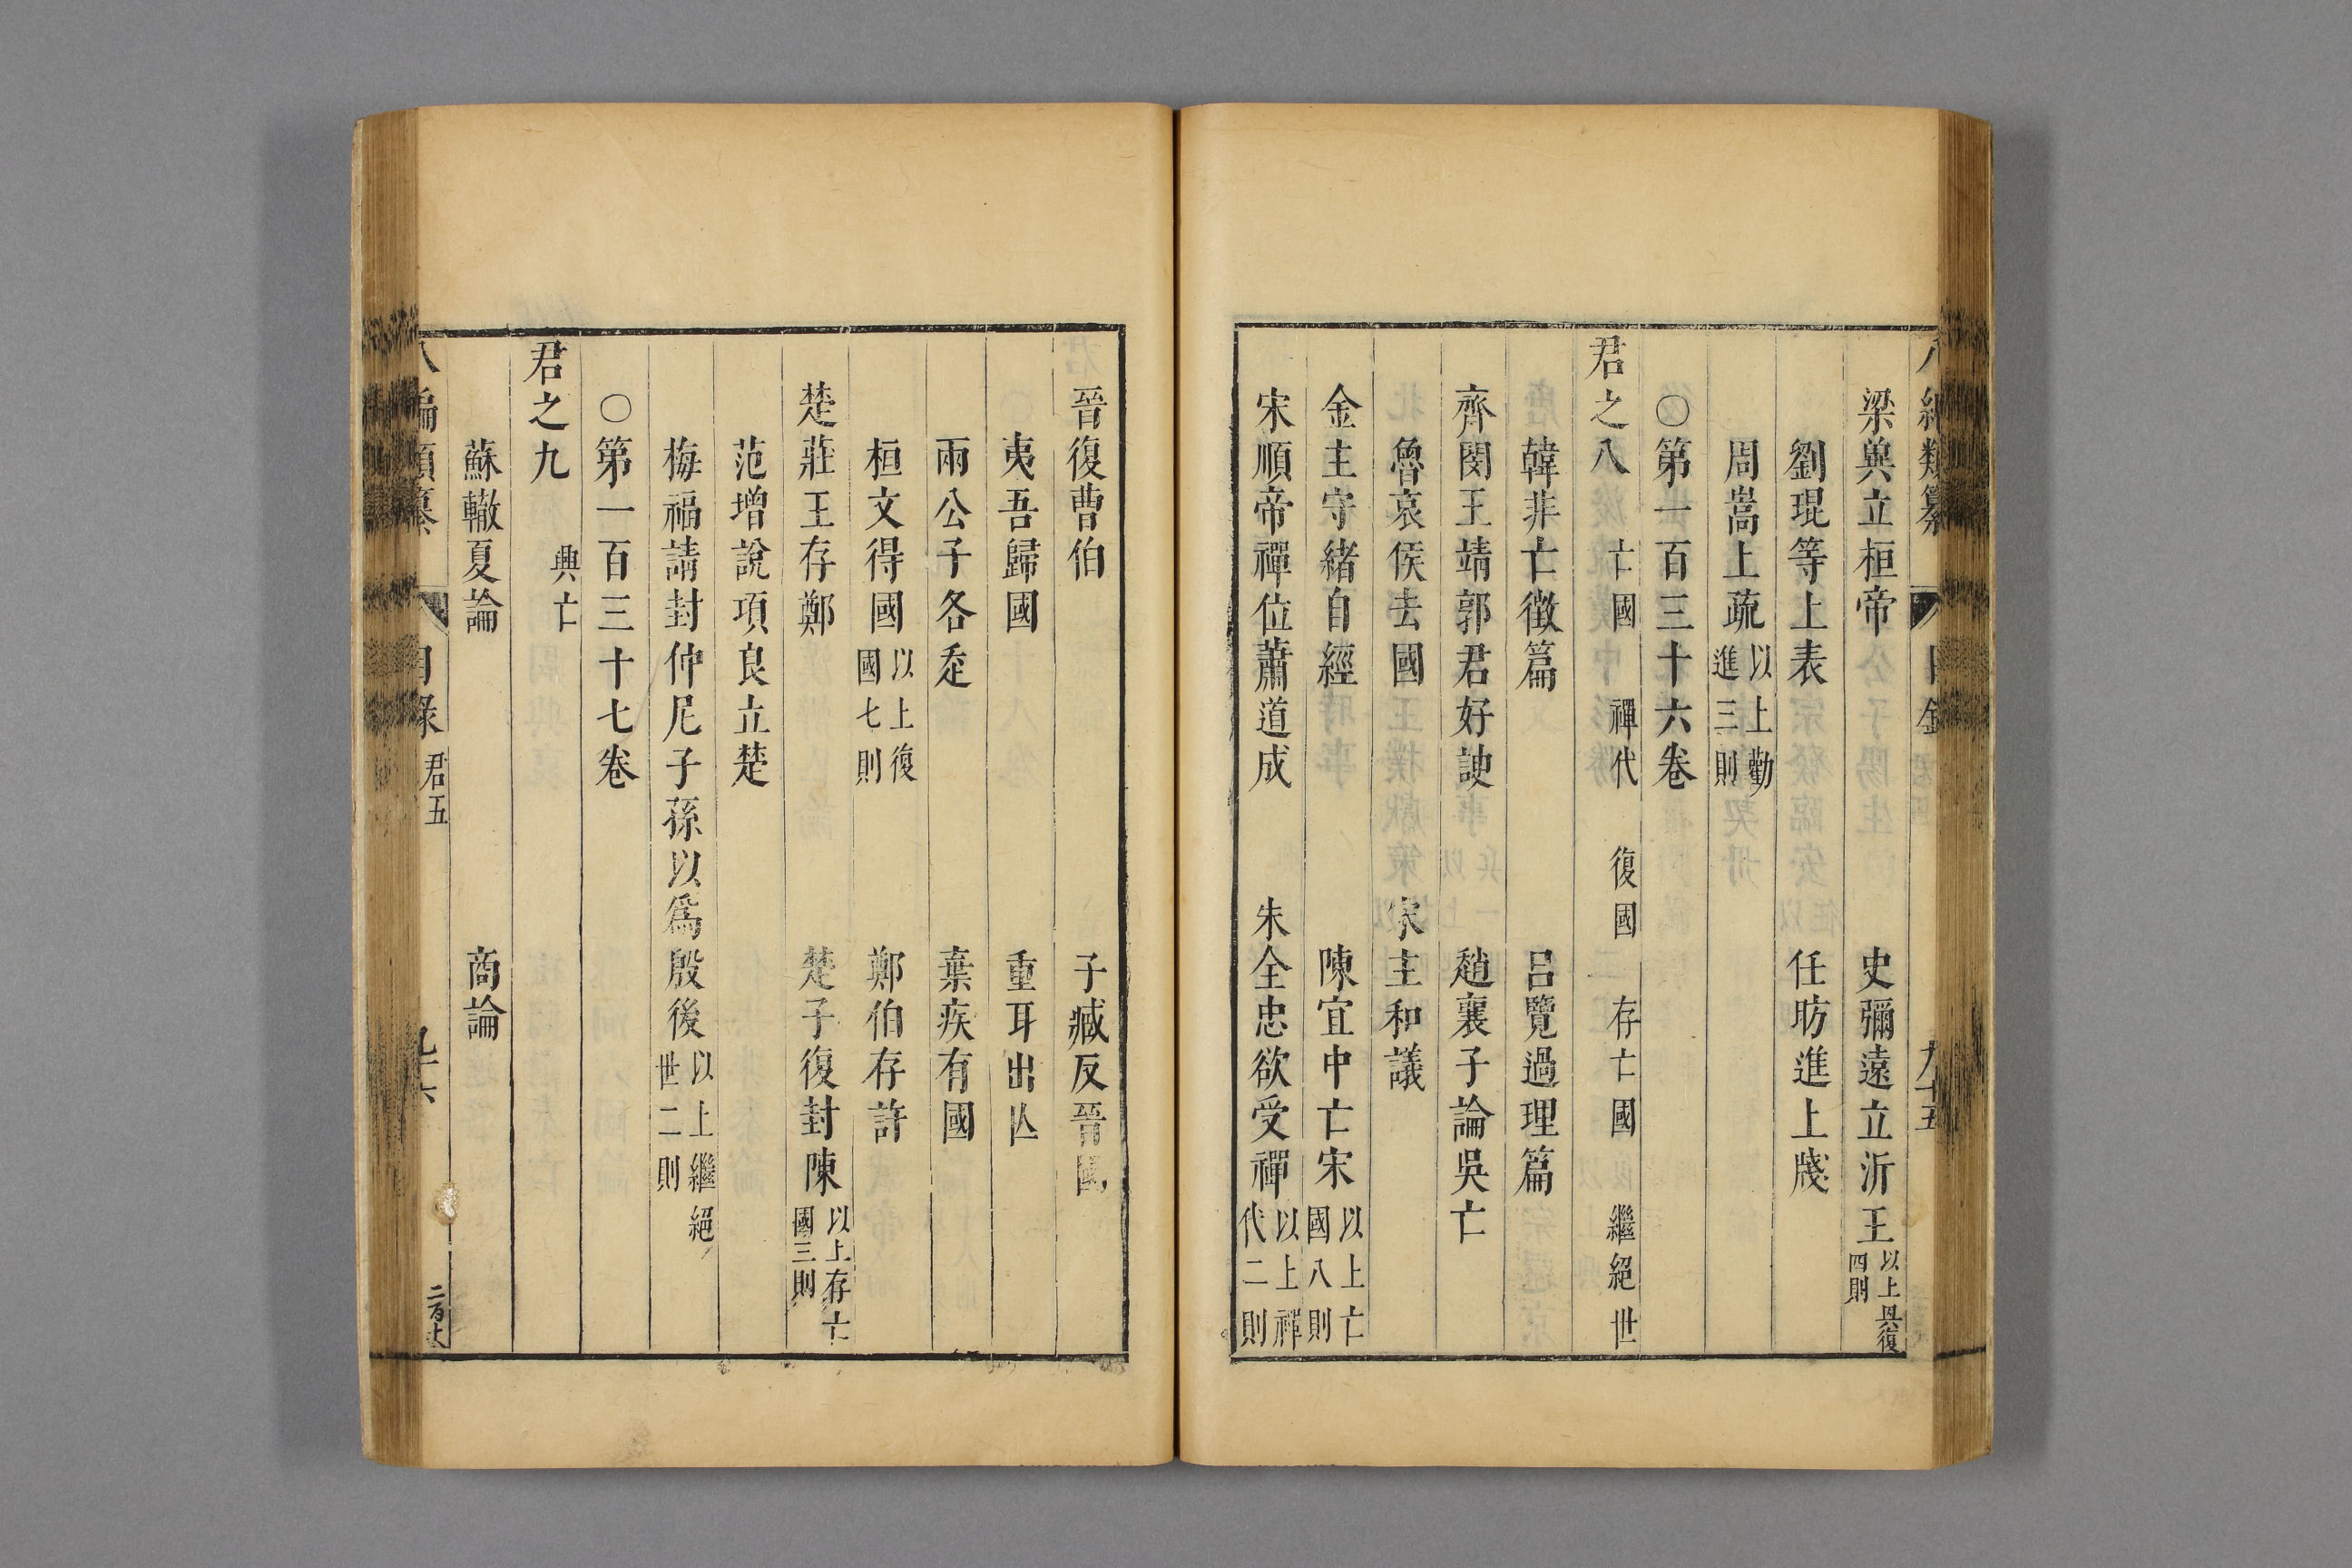 八編類纂 目錄 九十五
梁兾立桓帝 史彌遠立沂王 以上興復四則
劉琨等上表 任昉進上牋
周嵩上疏 以上勸進三則
○第一百三十六卷
君之八 亡國 禪代 復國 存亡國 繼絕世
韓非亡徵篇 呂覽過理篇
齊閔王靖郭君好諛 趙襄子論吳亡
魯哀侯去國 宋主和議
金主守緒自經 陳宜中亡宋 以上亡國八則
宋順帝禪位蕭道成 朱全忠欲受禪 以上禪代二則
晉復曹伯 子臧反晉國
夷吾歸國 重耳出亡
兩公子各走 棄疾有國
桓文得國 以上復國七則 鄭伯存許
楚莊王存鄭 楚子復封陳 以上存亡國三則
范增說項良立楚
梅福請封仲尼子孫以爲殷後 以上繼絕世二則
○第一百三十七卷
君之九 興亡
蘇轍夏論 商論
八編類纂 目錄 君五 九十六